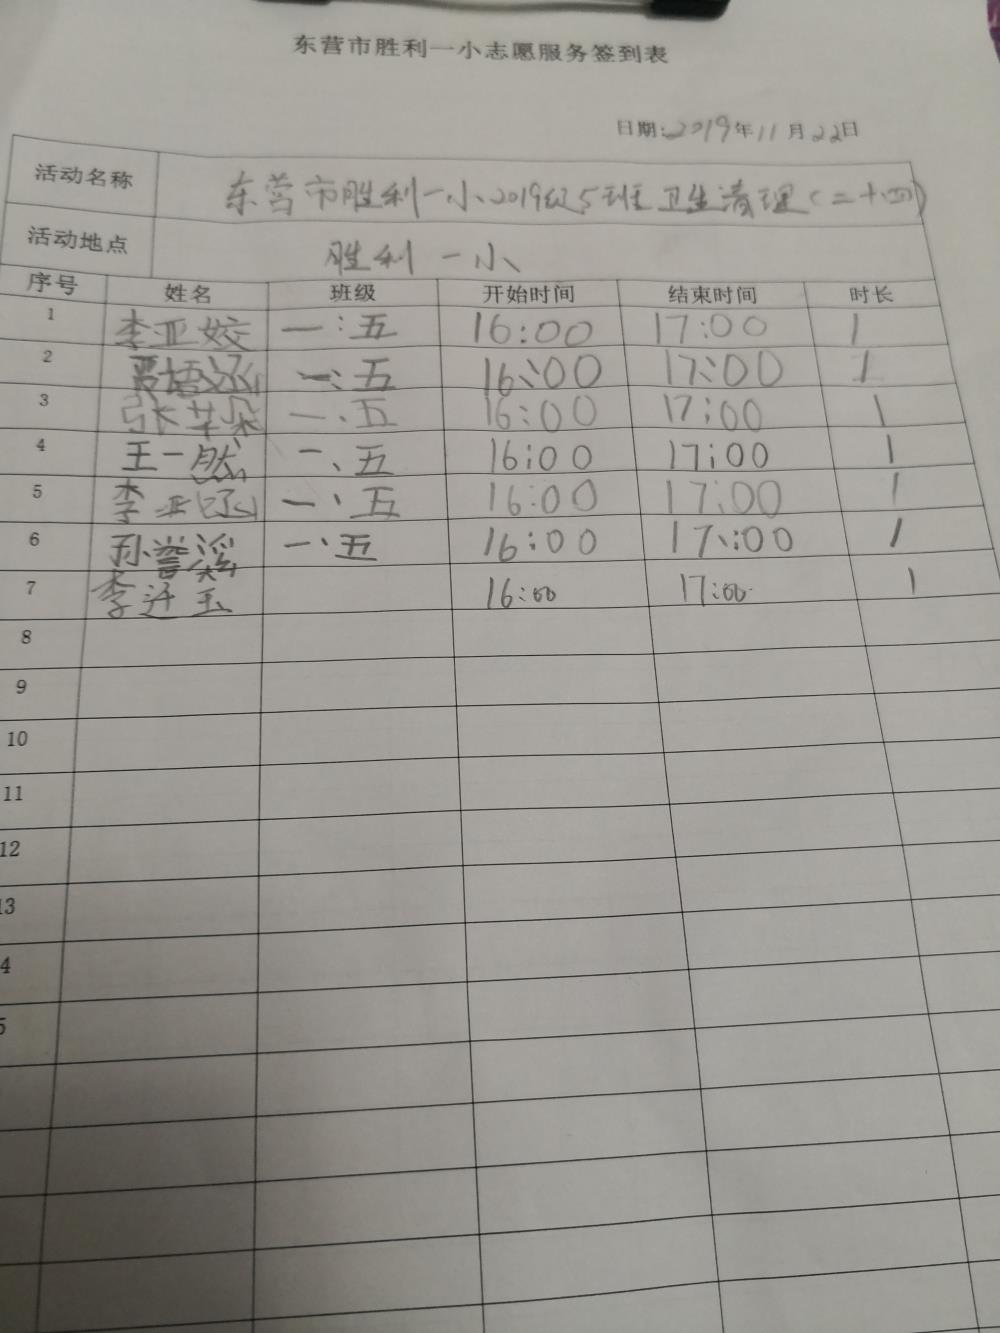 东营市胜利一小志愿服务签到表
日期:2019年11月22日
活动名称 东营市胜利一小2019级5班卫生清理(二十四)
活动地点 胜利一小
序号 姓名 班级 开始时间 结束时间 时长
1 李亚姣 一:五 16:00 17:00 1
2 贾语涵 一:五 16:00 17:00 1
3 张芊朵 一、五 16:00 17:00 1
4 王一然 一、五 16:00 17:00 1
5 李亚 一、五 16:00 17:00 1
6 孙誉溪 一、五 16:00 17:00 1
7 李 玉 16:00 17:00 1
8
9
10
11
12
13
4
5